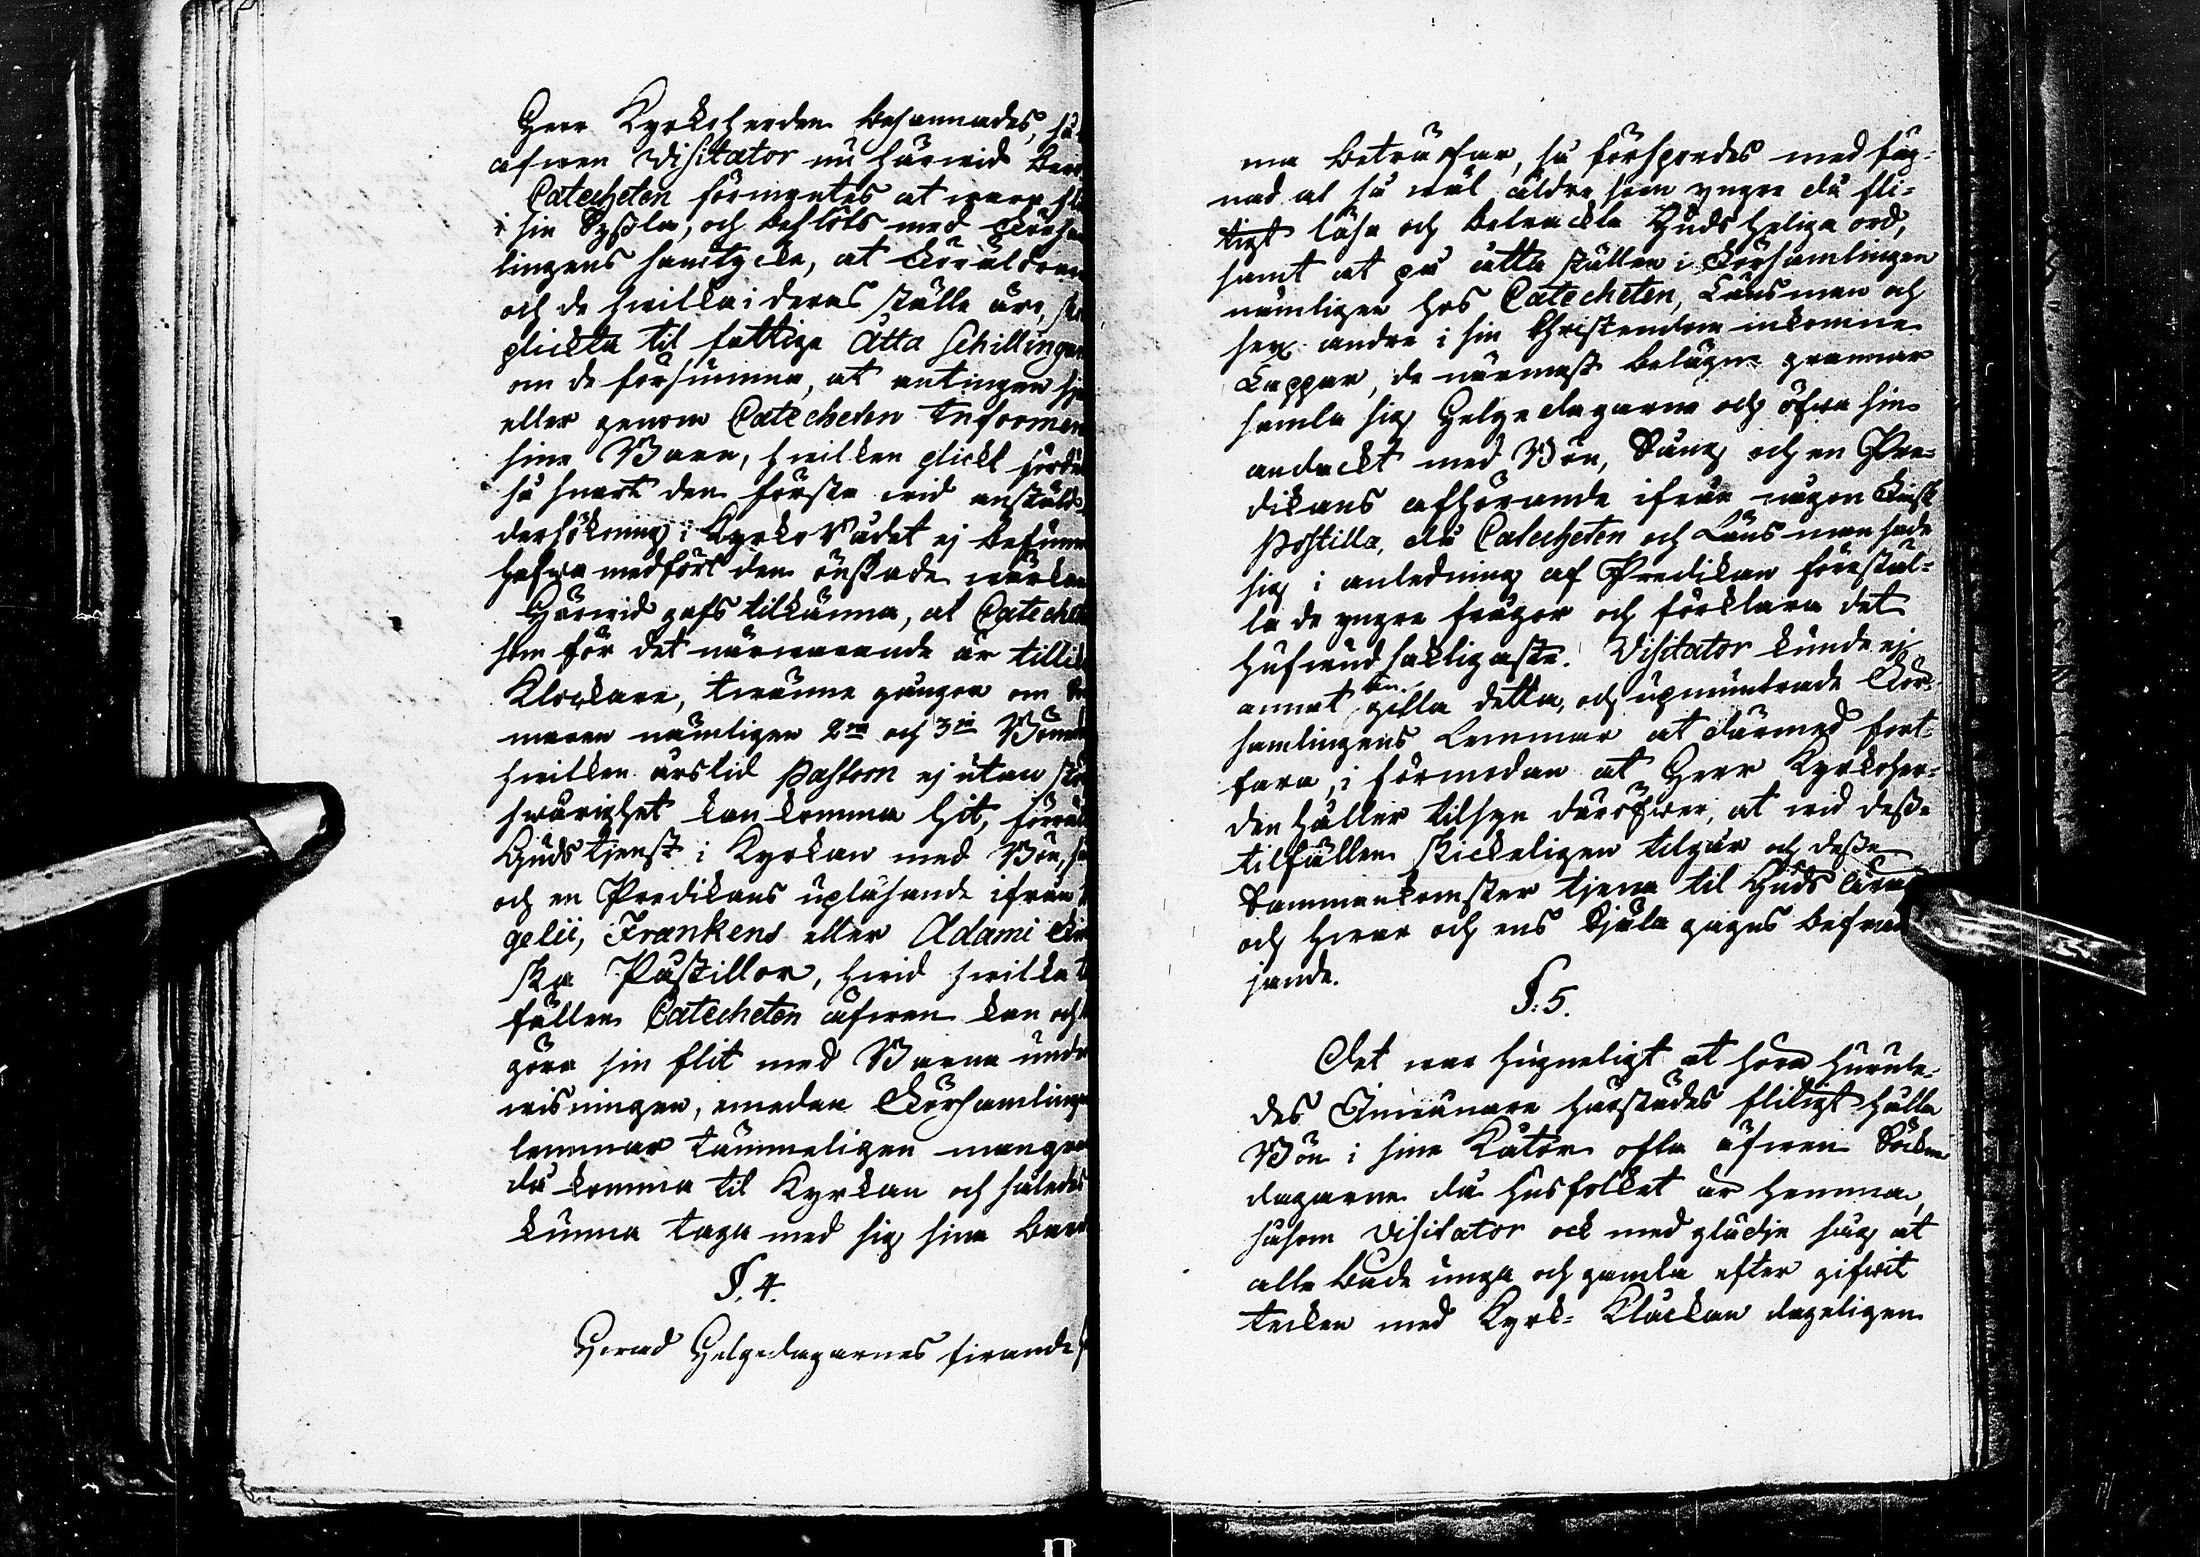 Herr Kyrkoherden besannades, så
afwen Visitator nu härwid
Catecheten förmentes at wara
i sin Syßla, och beslöts med Försam
lingens samtycke, at Föräldrar
och de hwilka i deras ställe äro,
plickta til fattige Åtta Schillingar
om de försumma, at antingen
eller genom Catecheten Informera
sine Barn, hwilken plickt
så snart den förste wid anstäld
dersökning i KyrkoRådet ej befinnes
hafwa medfört den önskade wärkan
Härwid gafs tilkänna, at Catecheten
som för det närwarande är tillika
Klockare, twänne gånger om
maren nämligen 2ra och 3ie Böndag
hwilken årstid Pastorn ej utan stor
swårighet kan komma hit, förrättar
Guds tjenst i Kyrkan med Bön,
och en Predikans upläsande ifrån
gelii, Frankens eller Adami
ska Påstillor, hwid hwilka
fällen Catecheten äfwen kan och
göra sin flit med Barna under
wisningen, emedan Församlingens
lemmar tämmeligen mangrant
då komma til Kyrkan och således
kunna taga med sig sina Barn
§. 4.
Hwad Helgedagarnes firande
ma beträffar, så försportes med fäg-
nad at så wäl äldre som yngre då fli-
tigt läsa och betrackta Guds heliga ord,
samt at på åtta ställen i Församlingen
nämligen hos Catecheten, Länsman och
sex andre i sin Christendom inkomne
Lappar, de närmast belägne grannar
samla sig Helgedagarne och öfwa sin
andackt med Bön, Sång och en Pre-
dikans afhörande ifrån någon Finsk
Postilla, då Catecheten och Länsman sade
sig i anledning af Predikan förestäl-
la de yngre frågor och förklara det
hufwudsakligaste. Visitator kunde ej
annat än gilla detta, och upmuntrade För-
samlingens Lemmar at därmed fort-
fara, i förmodan at Herr Kyrkoher-
den håller tilsyn däröfwer, at wid deße
tilfällen skickeligen tilgår och deße
Sammankomster tjena til Guds ära
och hwar och ens Själa gagns befräm
jande.
§. 5.
Det war hugneligt at höra huruле-
des Inwånare härstädes flitigt hålla
Bön i sina Kåtor ofta äfwen Söckne
dagarne då husfolket är hemma,
såsom Visitator ock med glädje såg at
alla både unga och gamla efter gifwit
tecken med Kyrk- Klåckan dageligen